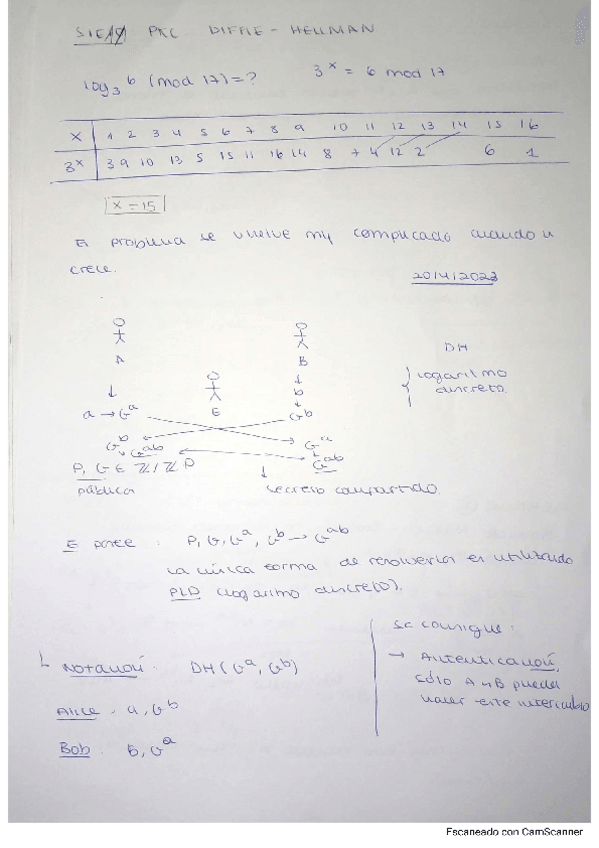 PKC DIFFIE - HELLMAN
log₃ 6 (mod 17) = ? 3ˣ = 6 mod 17
x 1 2 3 4 5 6 7 8 9 10 11 12 13 14 15 16
3ˣ 3 9 10 13 5 15 11 16 14 8 7 4 12 2 6 1
x = 15
El problema se vuelve my complicado cuando n
crece.
20/4/2023
A B
DH
E
logaritmo
discreto.
b
a → Gᵃ Gᵇ
Gᵇ Gᵃ
Gᵃᵇ Gᵃᵇ
P, G ∈ ℤ/ℤP
pública secreto compartido.
E posee : P, G, Gᵃ, Gᵇ → Gᵃᵇ
La única forma de resolverla es utilizando
PLD (logaritmo discreto).
Se consigue:
Notación: DH (Gᵃ, Gᵇ)
→ Autenticación,
sólo A y B pueden
hacer este intercambio
Alice : a, Gᵇ
Bob : b, Gᵃ
Escaneado con CamScanner